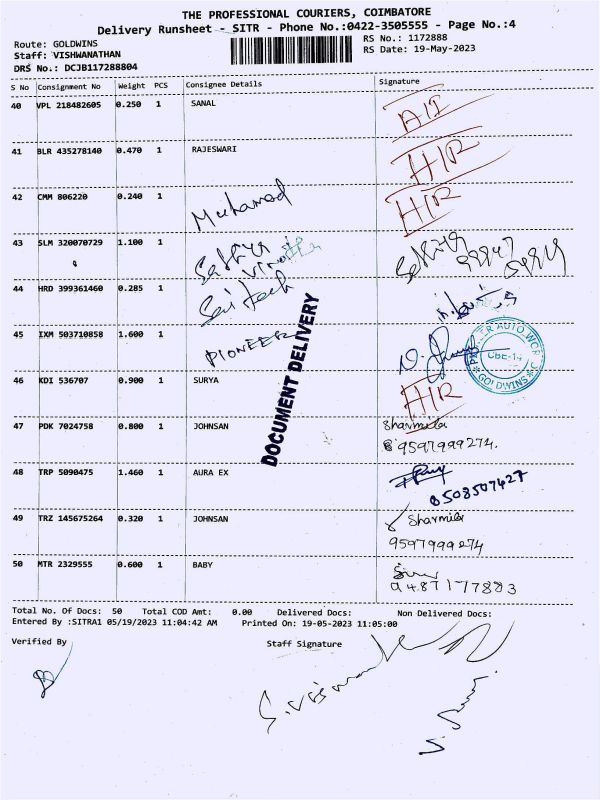 THE PROFESSIONAL COURIERS, COIMBATORE
Delivery Runsheet - SITR - Phone No.:0422-3505555 - Page No.:4
Route: GOLDWINS
Staff: VISHWANATHAN
DRS No.: DCJB117288804
RS No.: 1172888
RS Date: 19-May-2023
S No Consignment No Weight PCS Consignee Details Signature
40 VPL 218482605 0.250 1 SANAL
41 BLR 435278140 0.470 1 RAJESWARI HIR
42 CMM 806220 0.240 1 Muhamad HIR
43 SLM 320070729 1.100 1 Sathya Vinotha Sathiya
44 HRD 399361460 0.285 1 Sai Tech
45 IXM 503710858 1.600 1 PIONEER
PIONEER AUTO WORKS
CBE-14
GOLDWINS
46 KDI 536707 0.900 1 SURYA HIR
47 PDK 7024758 0.800 1 JOHNSAN Sharmila
9597999274.
48 TRP 5090475 1.460 1 AURA EX
8508507427
49 TRZ 145675264 0.320 1 JOHNSAN Sharmila
9597999274
50 MTR 2329555 0.600 1 BABY
9487177883
DOCUMENT DELIVERY
Total No. Of Docs: 50 Total COD Amt: 0.00 Delivered Docs: Non Delivered Docs:
Entered By :SITRA1 05/19/2023 11:04:42 AM Printed On: 19-05-2023 11:05:00
Verified By Staff Signature